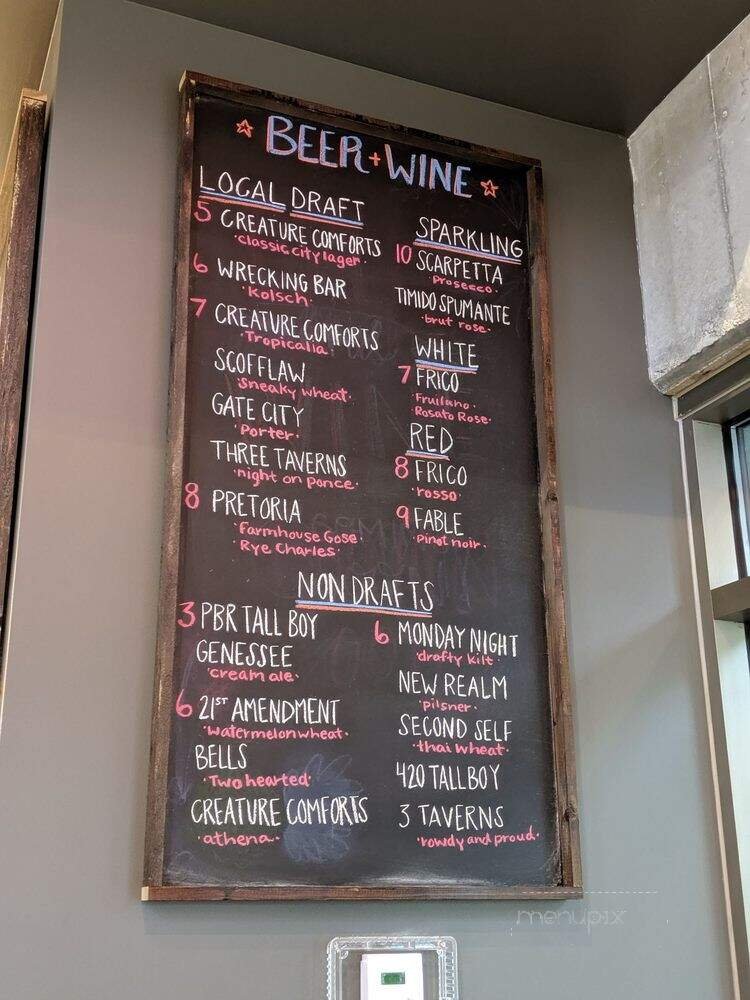 BEER + WINE
LOCAL DRAFT
5 CREATURE COMFORTS
·classic city lager·
6 WRECKING BAR
·Kolsch·
7 CREATURE COMFORTS
·Tropicalia·
SCOFFLAW
·sneaky wheat·
GATE CITY
·Porter·
THREE TAVERNS
·night on ponce·
8 PRETORIA
·Farmhouse Gose·
Rye Charles·
SPARKLING
10 SCARPETTA
·Prosecco·
TIMIDO SPUMANTE
·brut rose·
WHITE
7 FRICO
·Fruilano·
·Rosato Rose·
RED
8 FRICO
·rosso·
9 FABLE
·Pinot noir·
NON DRAFTS
3 PBR TALL BOY
GENESSEE
·cream ale·
6 21ST AMENDMENT
·watermelon wheat·
BELLS
·Two hearted·
CREATURE COMFORTS
·athena·
6 MONDAY NIGHT
·drafty kilt·
NEW REALM
·pilsner·
SECOND SELF
·thai wheat·
420 TALLBOY
3 TAVERNS
·rowdy and proud·
menupix